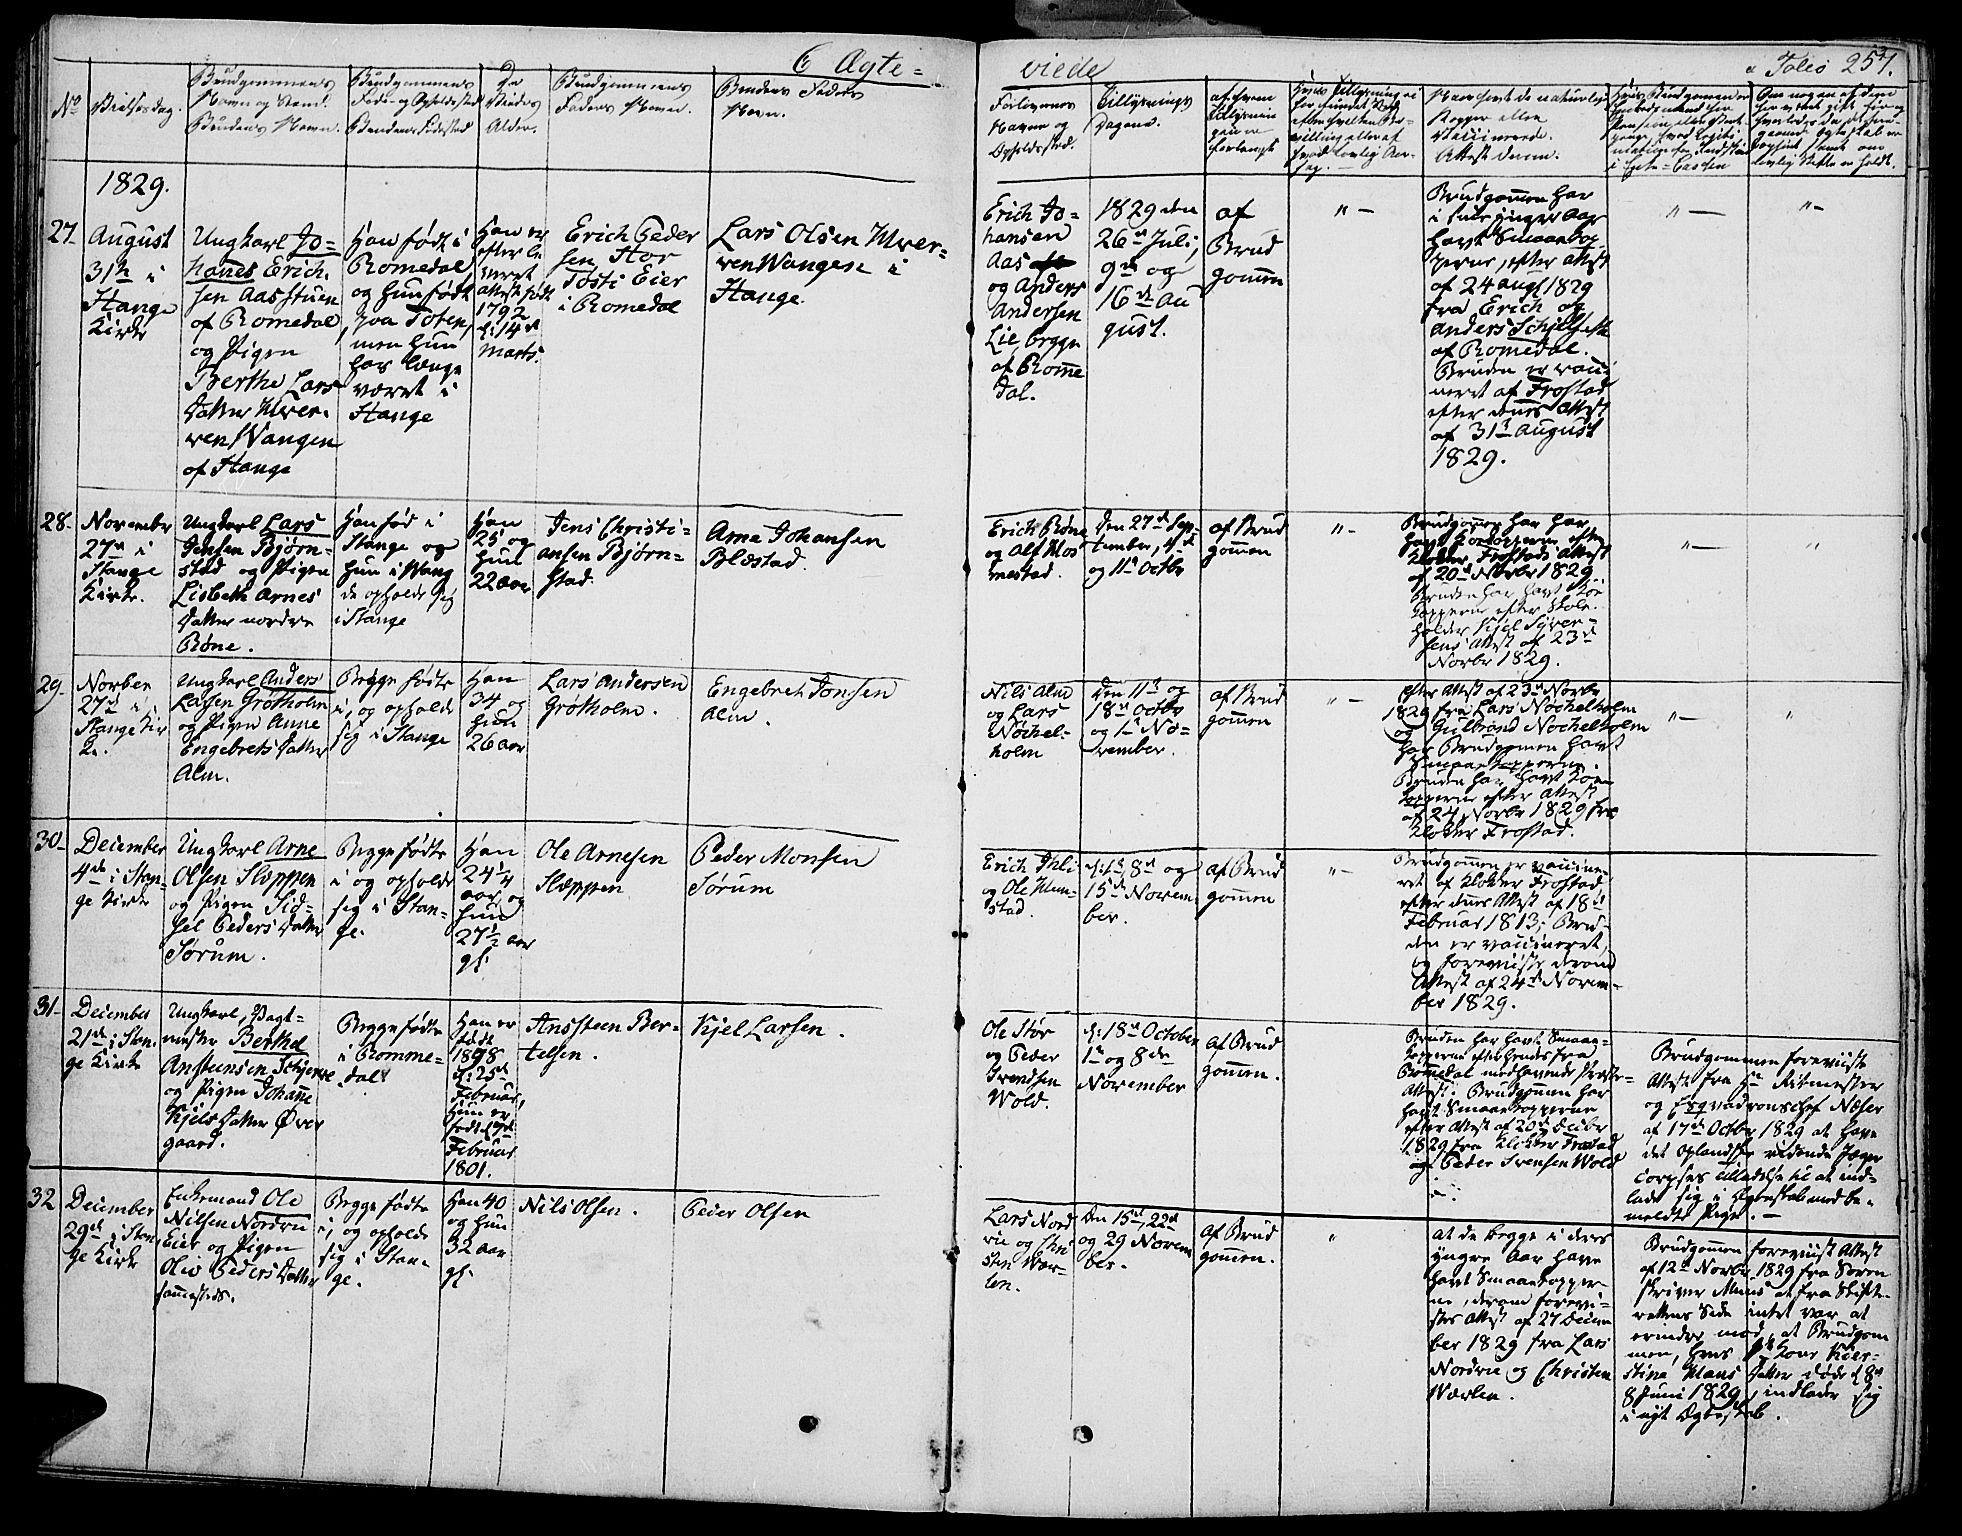 6 Ægte=
viede
Folio 257.
No
Vielsesdag.
Brudgommens
Navn og Stand.
Brudens Navn.
Brudgommens
Føde- og Opholdssted
Brudens Fødested
De
Viedes
Alder.
Brudgommens
Faders Navn.
Brudens Faders
Navn.
Forlovernes
Navne og
Opholdssted.
Tillysnings
Dagene.
af hvem
Tillysnin
gen er
forlangt
1829.
27.
August
31te i
Stange
Kirke
Ungkarl Jo=
hanes Erich
sen Aasstuen
af Romedal
og Pigen
Berthe Lars
Datter
Wangen
af Stange
Han født i
Romedal
og hun født
paa Toten,
men hun
har længe
været i
Stange
Han er
efter le
veret
Attest født
1792
d: 14de
Marts.
Erich Peder
sen Stor
Tosti Eier
i Romedal
Lars Olsen
Wangen i
Stange.
Erich Jo=
hansen
Aas
og Anders
Andersen
Lie, begge
af Rome
dal.
1829 den
26de Juli,
9de og
16de Au
gust.
af
Brud
gommen
" —
Brudgommen har
i sine yngre Aar
havt Smaakop
perne, efter Attest
af 24 Augt 1829
fra Erich og
Anders
af Romedal.
Bruden er vacci
neret af Frostad
efter dennes Attest
af 31te August
1829.
" —
" -
28.
November
27de i
Stange
Kirke.
Ungkarl Lars
Jensen Bjørn=
stad og Pigen
Lisbeth Arnes
Datter nordre
Røne.
Han fød i
Stange og
hun i Wang
de opholde sig
i Stange
Han
25 og
hun
22 aar
Jens Christi=
ansen Bjørn=
stad.
Arne Johansen
Blæstad.
Erich Røne
og Alf Mos
mestad.
Den 27de Sep=
tember, 4de
og 11te Octbr
af Brud
gommen
" -
Brudgommen har
havt Kokopperne efter
Klokker Frostads Attest
af 20de Novbr 1829
Bruden har havt Ko=
kopperne efter Skole=
holder Kjel Syver=
sens Attest af 23de
Novbr 1829.
" —
"
29.
Novber
27de i
Stange Kir
ke.
Ungkarl Anders
Larsen Grøtholm
og Pigen Anne
Engebrets Datter
Alm.
Begge fødte
i, og opholde
sig i Stange
Han
34 og
hun
26 aar
Lars Andersen
Grøtholm.
Engebret Jonsen
Alm.
Nils Alm
og Lars
Nøchel=
holm
Den 11te og
18de Octbr
og 1te No=
vember.
af Brud
gommen
" -
Efter Attest af 23de Novbr
1829 fra Lars Nøchelholm
og Gulbrand Nøchelholm
har Brudgommen havt
Smaakopperne.
Bruden har havt Ko=
kopperne efter Attest
af 24 Novbr 1829 fra
Klokker Frostad.
" —
"
30.
December
4de i Stan=
ge Kirke
Ungkarl Arne
Olsen Slæppen
og Pigen Sid=
sel Peders Datter
Sørum.
Begge fødte
i og opholde
sig i Stan=
ge.
Han
24 1/4
aar og
hun
27 1/2 aar
gl.
Ole Arnesen
Slæppen
Peder Monsen
Sørum
Erich Ihli
og Ole
stad.
d: 1te, 8de og
15de Novem
ber.
af Brud
gommen
" -
Brudgommen er vaccine=
ret af Klokker Frostad
efter dennes Attest af 18de
Februar 1813; Bru=
den er vaccineret,
og foreviiste derom
Attest af 24de Novem=
ber 1829.
31.
December
21de i Stan
ge Kirke
Ungkarl, Vagt=
mester Berthel
Anstensen
og Pigen Johanne
Kjels Datter Øver
gaard.
Begge fødte
i Romme=
dal.
Han er
født
1898
d: 25de
Februar,
Hun er
født d:
Februar
1801.
Ansteen Ber=
telsen.
Kjel Larsen.
Ole Stør
og Peder
Svendsen
Wold.
d: 18de October
1te og 8de
November
af Brud
gommen.
Bruden har havt Smaa=
kopperne efter hendes fra
Romedal medhavende Præste=
Attest. Brudgommen har
havt Smaakopperne
efter Attest af 20de Decbr
1829 fra Klokker Frostad
og Peder Svensen Wold
Brudgommen foreviiste
Attest fra Hr Ritmester
og Esqvadronschef Næser
af 17de Octbr 1829 at have
det Oplandske ridende Jæger
Corpses Tilladelse til at ind=
lade sig i Ægteskab med be=
meldte Pige. —
32
December
29de i Stan
ge Kirke
Enkemand Ole
Nilsen Nordvie
Eier og Pigen
Olea Peders Datter
sammesteds.
Begge fødte
i, og opholde
sig i Stan=
ge.
Han 40
og hun
32 aar
gl.
Nils Olsen.
Peder Olsen
Lars Nord
vie og Chri
sten Wær=
len.
Den 15de, 22de
og 29 Novem
ber.
af Brud
gommen.
"
at de begge i deres
yngre Aar have
havt Smaakopper=
ne, derom forevi=
stes Attest af 27 Decem
ber 1829 fra Lars
Nordvie og Christen
Wærlen.
Brudgommen foreviist Attest
af 12te Novbr 1829 fra Soren
skriver Muus at fra Skifte=
rettens Side intet var at
erindre mod, at Brudgom
men, hvis Kone Kier=
stine Hans Datter døde d 8de
8 Juni 1829, indlader sig
i nyt Ægteskab.